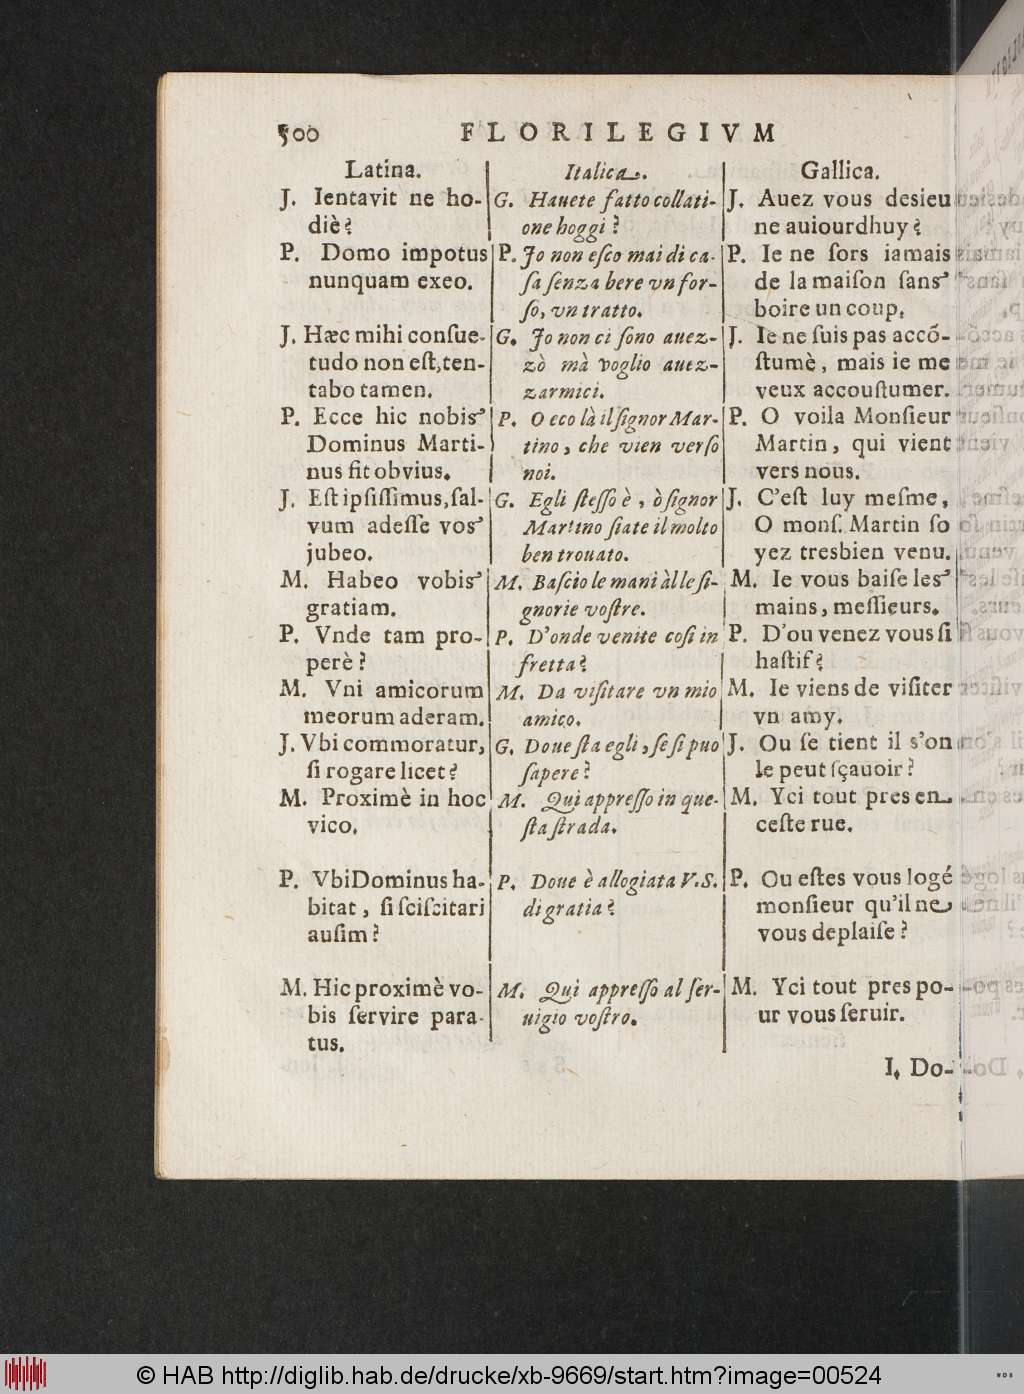 500 FLORILEGIVM
Latina.
J. Ientavit ne ho-
diè?
P. Domo impotus
nunquam exeo.
J. Hæc mihi conſue-
tudo non eſt, ten-
tabo tamen.
P. Ecce hic nobis
Dominus Marti-
nus fit obvius.
J. Eſt ipſiſſimus, ſal-
vum adeſſe vos
jubeo.
M. Habeo vobis
gratiam.
P. Vnde tam pro-
perè?
M. Vni amicorum
meorum aderam.
J. Vbi commoratur,
ſi rogare licet?
M. Proximè in hoc
vico.
P. Vbi Dominus ha-
bitat, ſi ſciſcitari
auſim?
M. Hic proximè vo-
bis ſervire para-
tus.
Italica.
G. Hauete fatto collati-
one hoggi?
P. Jo non eſco mai di ca-
ſa ſenza bere vn ſor-
ſo, vn tratto.
G. Jo non ci ſono auez-
zò mà voglio auez-
zarmici.
P. O eco là il ſignor Mar-
tino, che vien verſo
noi.
G. Egli ſteſſo è, ò ſignor
Martino ſiate il molto
ben trouato.
M. Baſcio le mani àlle ſi-
gnorie voſtre.
P. D'onde venite coſi in
fretta?
M. Da viſitare vn mio
amico.
G. Doue ſta egli, ſe ſi puo
ſapere?
M. Qui appreſſo in que-
ſta ſtrada.
P. Doue è allogiata V.S.
di gratia?
M. Qui appreſſo al ſer-
uigio voſtro.
Gallica.
J. Auez vous desieu
ne auiourdhuy?
P. Ie ne ſors iamais
de la maiſon ſans
boire un coup.
J. Ie ne ſuis pas accõ-
ſtumè, mais ie me
veux accouſtumer.
P. O voila Monſieur
Martin, qui vient
vers nous.
J. C'eſt luy meſme,
O monſ. Martin ſo
yez tresbien venu.
M. Ie vous baiſe les
mains, meſſieurs.
P. D'ou venez vous ſi
haſtif?
M. Ie viens de viſiter
vn amy.
J. Ou ſe tient il s'on
le peut ſçauoir?
M. Yci tout pres en
ceſte rue.
P. Ou eſtes vous logé
monſieur qu'il ne
vous deplaiſe?
M. Yci tout pres po-
ur vous ſeruir.
I. Do-
© HAB http://diglib.hab.de/drucke/xb-9669/start.htm?image=00524